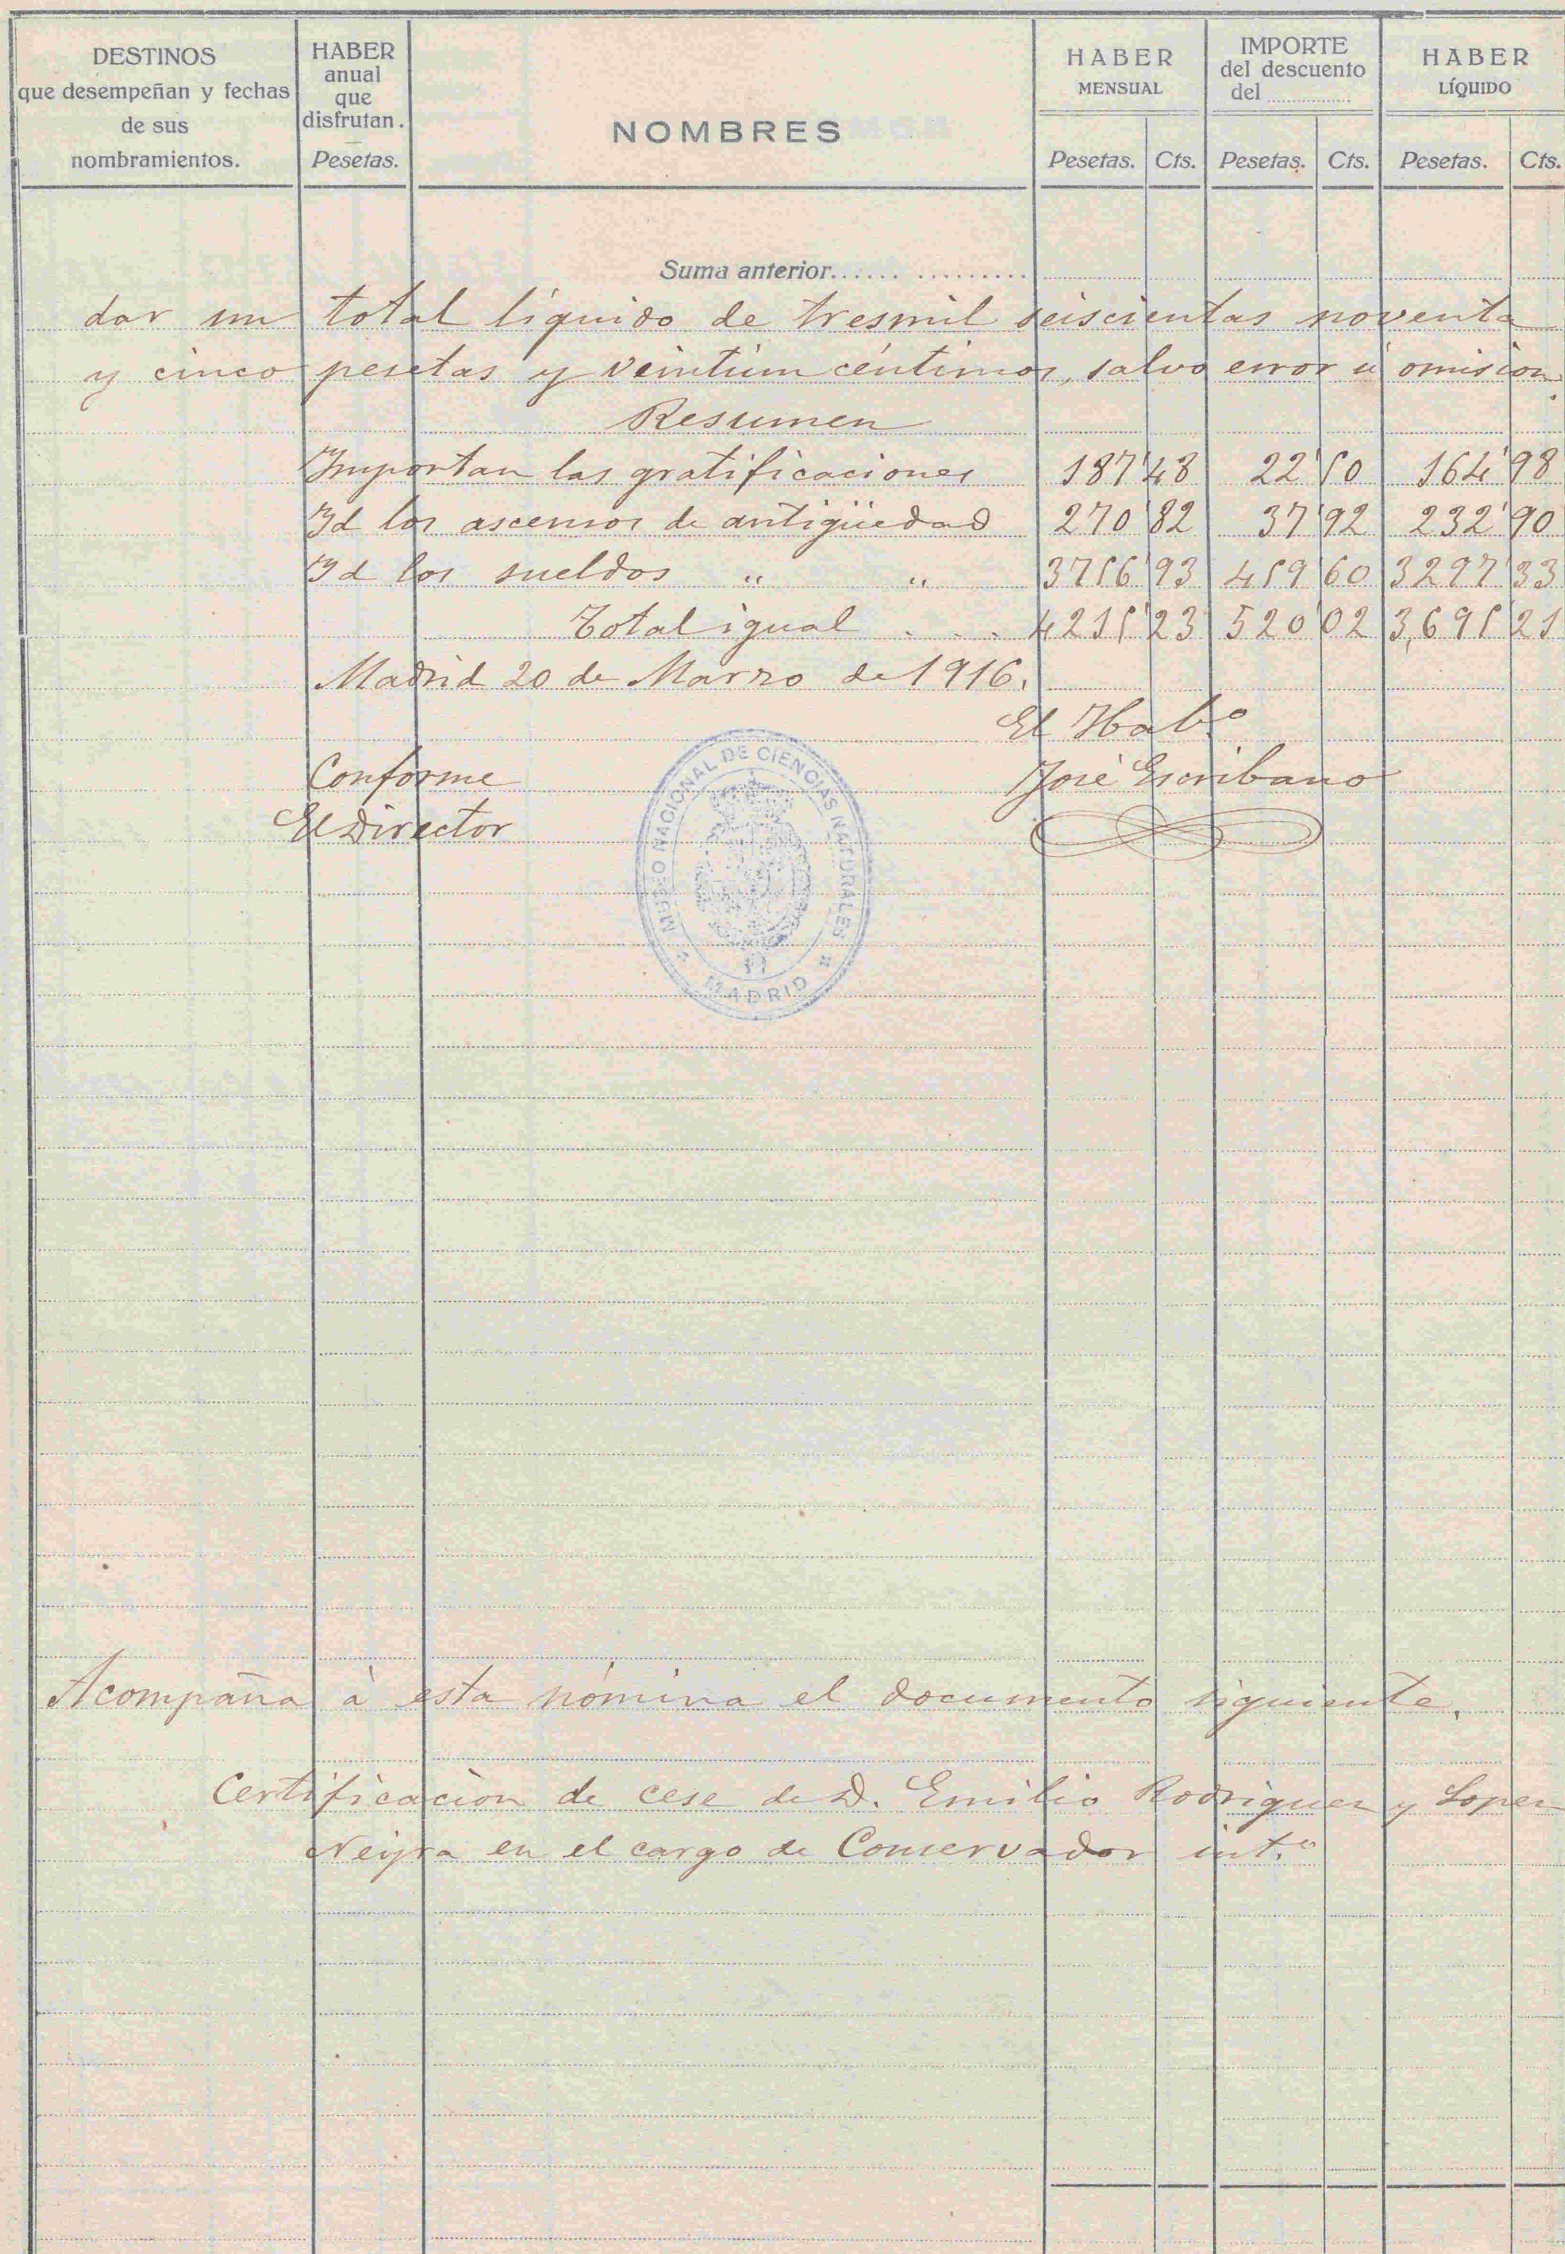 DESTINOS
que desempeñan y fechas
de sus
nombramientos.
HABER
anual
que
disfrutan.
Pesetas.
NOMBRES
HABER
MENSUAL
Pesetas. Cts.
IMPORTE
del descuento
del
Pesetas. Cts.
HABER
LÍQUIDO
Pesetas. Cts.
Suma anterior
dar un total líquido de tresmil seiscientas noventa
y cinco pesetas y veintiún céntimos, salvo error ú omision.
Resumen
Importan las gratificaciones 187'48 22'50 164'98
Id los ascensos de antigüedad 270'82 37'92 232'90
Id los sueldos " " 3756'93 459'60 3297'33
Total igual . . . 4215'23 520'02 3,695'21
Madrid 20 de Marzo de 1916.
El Hab.º
Conforme José Escribano
El Director
MUSEO NACIONAL DE CIENCIAS NATURALES
MADRID
Acompaña à esta nómina el documento siguiente.
Certificación de cese de D. Emilio Rodriguez y Lopez
Neyra en el cargo de Conservador int.º